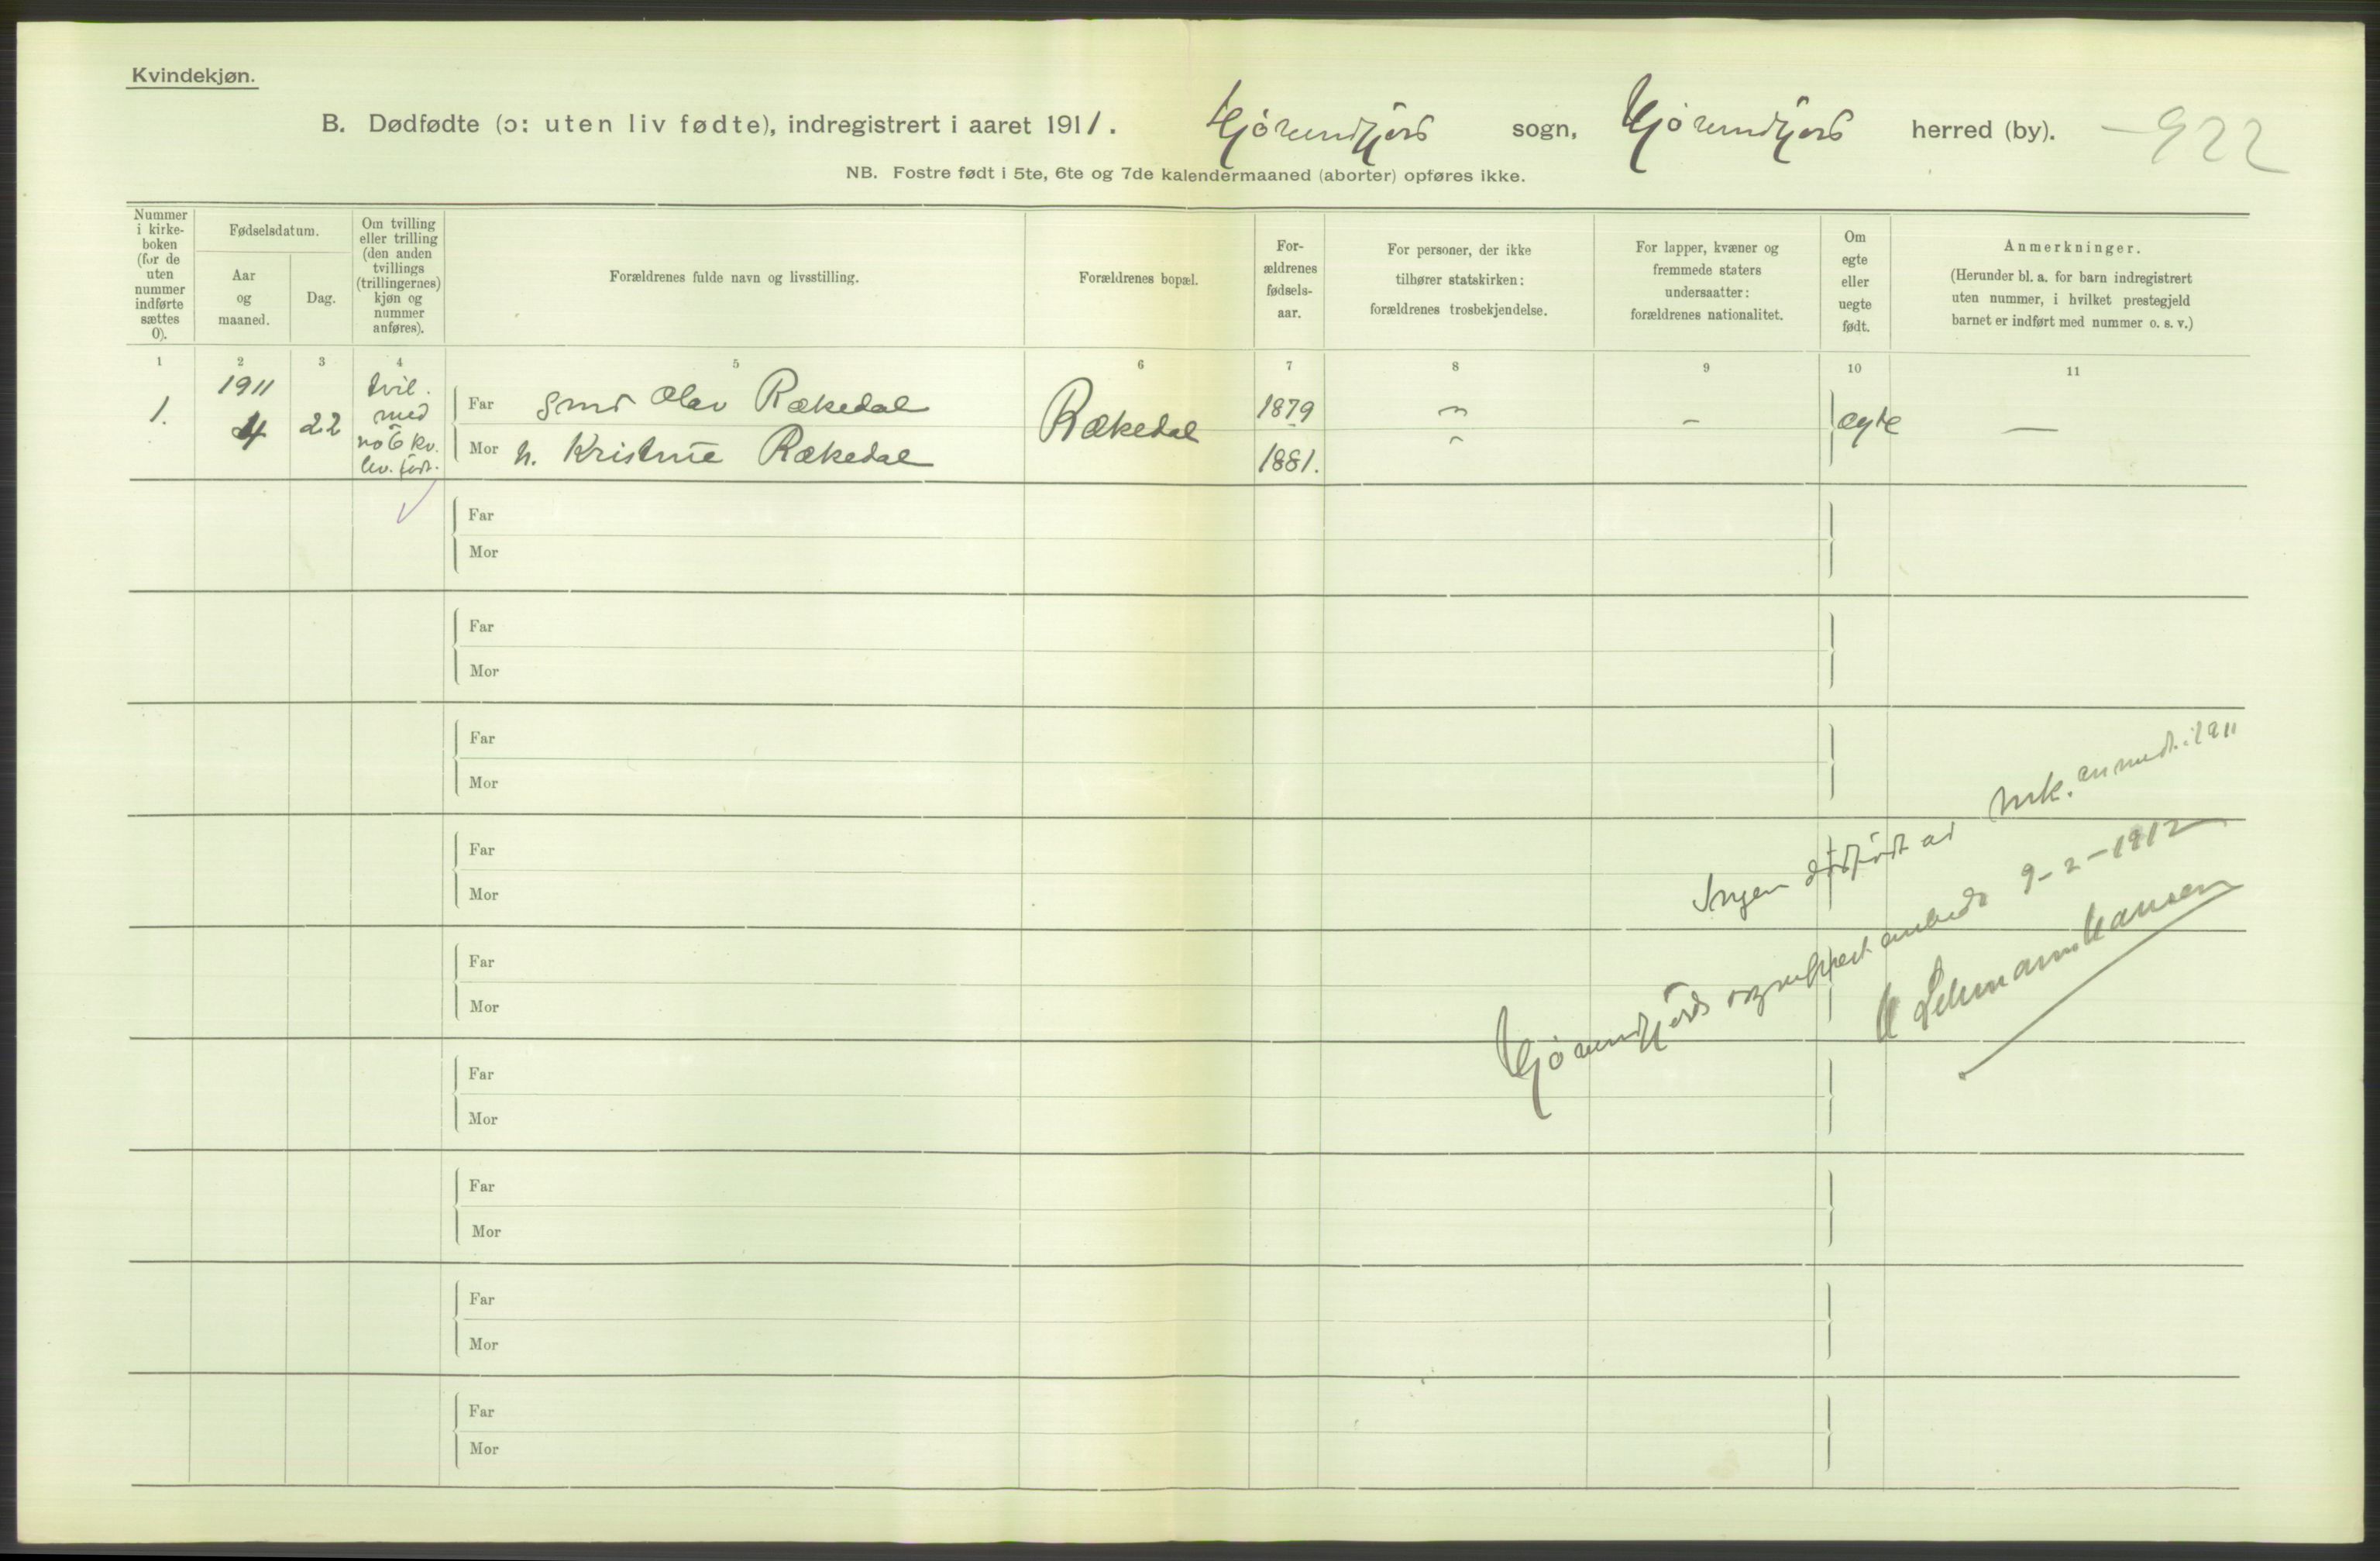 Kvindekjøn.
B. Dødfødte (ɔ: uten liv fødte), indregistrert i aaret 1911. Hjørundfjord sogn, Hjørundfjord herred (by). – 922
NB. Fostre født i 5te, 6te og 7de kalendermaaned (aborter) opføres ikke.
Nummer
i kirke-
boken
(for de
uten
nummer
indførte
sættes
0).
Fødselsdatum.
Aar
og
maaned.
Dag.
Om tvilling
eller trilling
(den anden
tvillings
(trillingernes)
kjøn og
nummer
anføres).
Forældrenes fulde navn og livsstilling.
Forældrenes bopæl.
For-
ældrenes
fødsels-
aar.
For personer, der ikke
tilhører statskirken:
forældrenes trosbekjendelse.
For lapper, kvæner og
fremmede staters
undersaatter:
forældrenes nationalitet.
Om
egte
eller
uegte
født.
Anmerkninger.
(Herunder bl. a. for barn indregistrert
uten nummer, i hvilket prestegjeld
barnet er indført med nummer o. s. v.)
1 2 3 4 5 6 7 8 9 10 11
1.
1911
4
22
tvil.
med
no 6 kv.
lev. født.
Far Smd Olav Rækedal
Mor h. Kristine Rækedal
Rækedal
1879
1881.
"
"
–
ægte
—
Far
Mor
Far
Mor
Far
Mor
Far
Mor
Far
Mor
Far
Mor
Far
Mor
Far
Mor
Far
Mor
Ingen dødfødt av mk. anmeldt i 1911
Hjørundfjords sogneprestembede 9-2-1912
H Lehmann Hansen